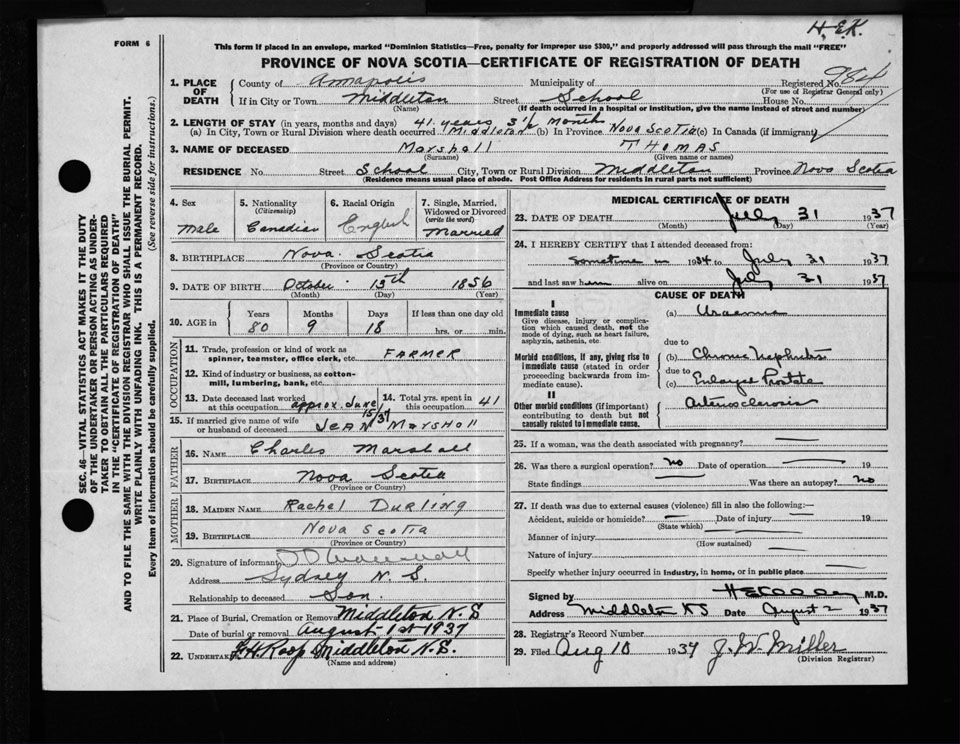 H.E.K.
FORM 6
This form if placed in an envelope, marked "Dominion Statistics—Free, penalty for improper use $300," and properly addressed will pass through the mail "FREE"
PROVINCE OF NOVA SCOTIA—CERTIFICATE OF REGISTRATION OF DEATH
SEC. 46—VITAL STATISTICS ACT MAKES IT THE DUTY
OF THE UNDERTAKER OR PERSON ACTING AS UNDER-
TAKER TO OBTAIN ALL THE PARTICULARS REQUIRED
IN THE "CERTIFICATE OF REGISTRATION OF DEATH"
AND TO FILE THE SAME WITH THE DIVISION REGISTRAR WHO SHALL ISSUE THE BURIAL PERMIT.
WRITE PLAINLY WITH UNFADING INK. THIS IS A PERMANENT RECORD.
Every item of information should be carefully supplied. (See reverse side for instructions.)
1. PLACE OF DEATH County of Annapolis Municipality of Registered No. 984
(For use of Registrar General only)
If in City or Town Middleton Street School House No.
(Name) (If death occurred in a hospital or institution, give the name instead of street and number)
2. LENGTH OF STAY (in years, months and days) 41 years 3½ months
(a) In City, Town or Rural Division where death occurred Middleton (b) In Province Nova Scotia (c) In Canada (if immigrant)
3. NAME OF DECEASED Marshall THOMAS
(Surname) (Given name or names)
RESIDENCE No. Street School City, Town or Rural Division Middleton Province Nova Scotia
(Residence means usual place of abode. Post Office Address for residents in rural parts not sufficient)
4. Sex Male
5. Nationality (Citizenship) Canadian
6. Racial Origin English
7. Single, Married, Widowed or Divorced (write the word) Married
8. BIRTHPLACE Nova Scotia
(Province or Country)
9. DATE OF BIRTH October 13th 1856
(Month) (Day) (Year)
10. AGE in Years 80 Months 9 Days 18 If less than one day old hrs. or min.
OCCUPATION
11. Trade, profession or kind of work as spinner, teamster, office clerk, etc. FARMER
12. Kind of industry or business, as cotton-mill, lumbering, bank, etc.
13. Date deceased last worked at this occupation approx. June 15/37
14. Total yrs. spent in this occupation 41
15. If married give name of wife or husband of deceased JEAN Marshall
FATHER
16. NAME Charles Marshall
17. BIRTHPLACE Nova Scotia
(Province or Country)
MOTHER
18. MAIDEN NAME Rachel Durling
19. BIRTHPLACE Nova Scotia
(Province or Country)
20. Signature of informant
Address Sydney N.S.
Relationship to deceased Son.
21. Place of Burial, Cremation or Removal Middleton N.S
Date of burial or removal August 1st 1937
22. UNDERTAKER Roop Middleton N.S.
(Name and address)
MEDICAL CERTIFICATE OF DEATH
23. DATE OF DEATH July 31 1937
(Month) (Day) (Year)
24. I HEREBY CERTIFY that I attended deceased from:
Sometime in 1934 to July 31 1937
and last saw him alive on July 31 1937
CAUSE OF DEATH
I
Immediate cause
Give disease, injury or complication which caused death, not the mode of dying, such as heart failure, asphyxia, asthenia, etc.
(a) Uraemia
due to
Morbid conditions, if any, giving rise to immediate cause (stated in order proceeding backwards from immediate cause).
(b) Chronic Nephritis
due to
(c) Enlarged Prostate
II
Other morbid conditions (if important) contributing to death but not causally related to immediate cause.
Arteriosclerosis
25. If a woman, was the death associated with pregnancy?
26. Was there a surgical operation? no Date of operation 19
State findings Was there an autopsy? no
27. If death was due to external causes (violence) fill in also the following:—
Accident, suicide or homicide? Date of injury 19
(State which)
Manner of injury
(How sustained)
Nature of injury
Specify whether injury occurred in industry, in home, or in public place
Signed by M.D.
Address Middleton NS Date August 2 1937
28. Registrar's Record Number
29. Filed Aug 10 1937 J. W. Miller
(Division Registrar)